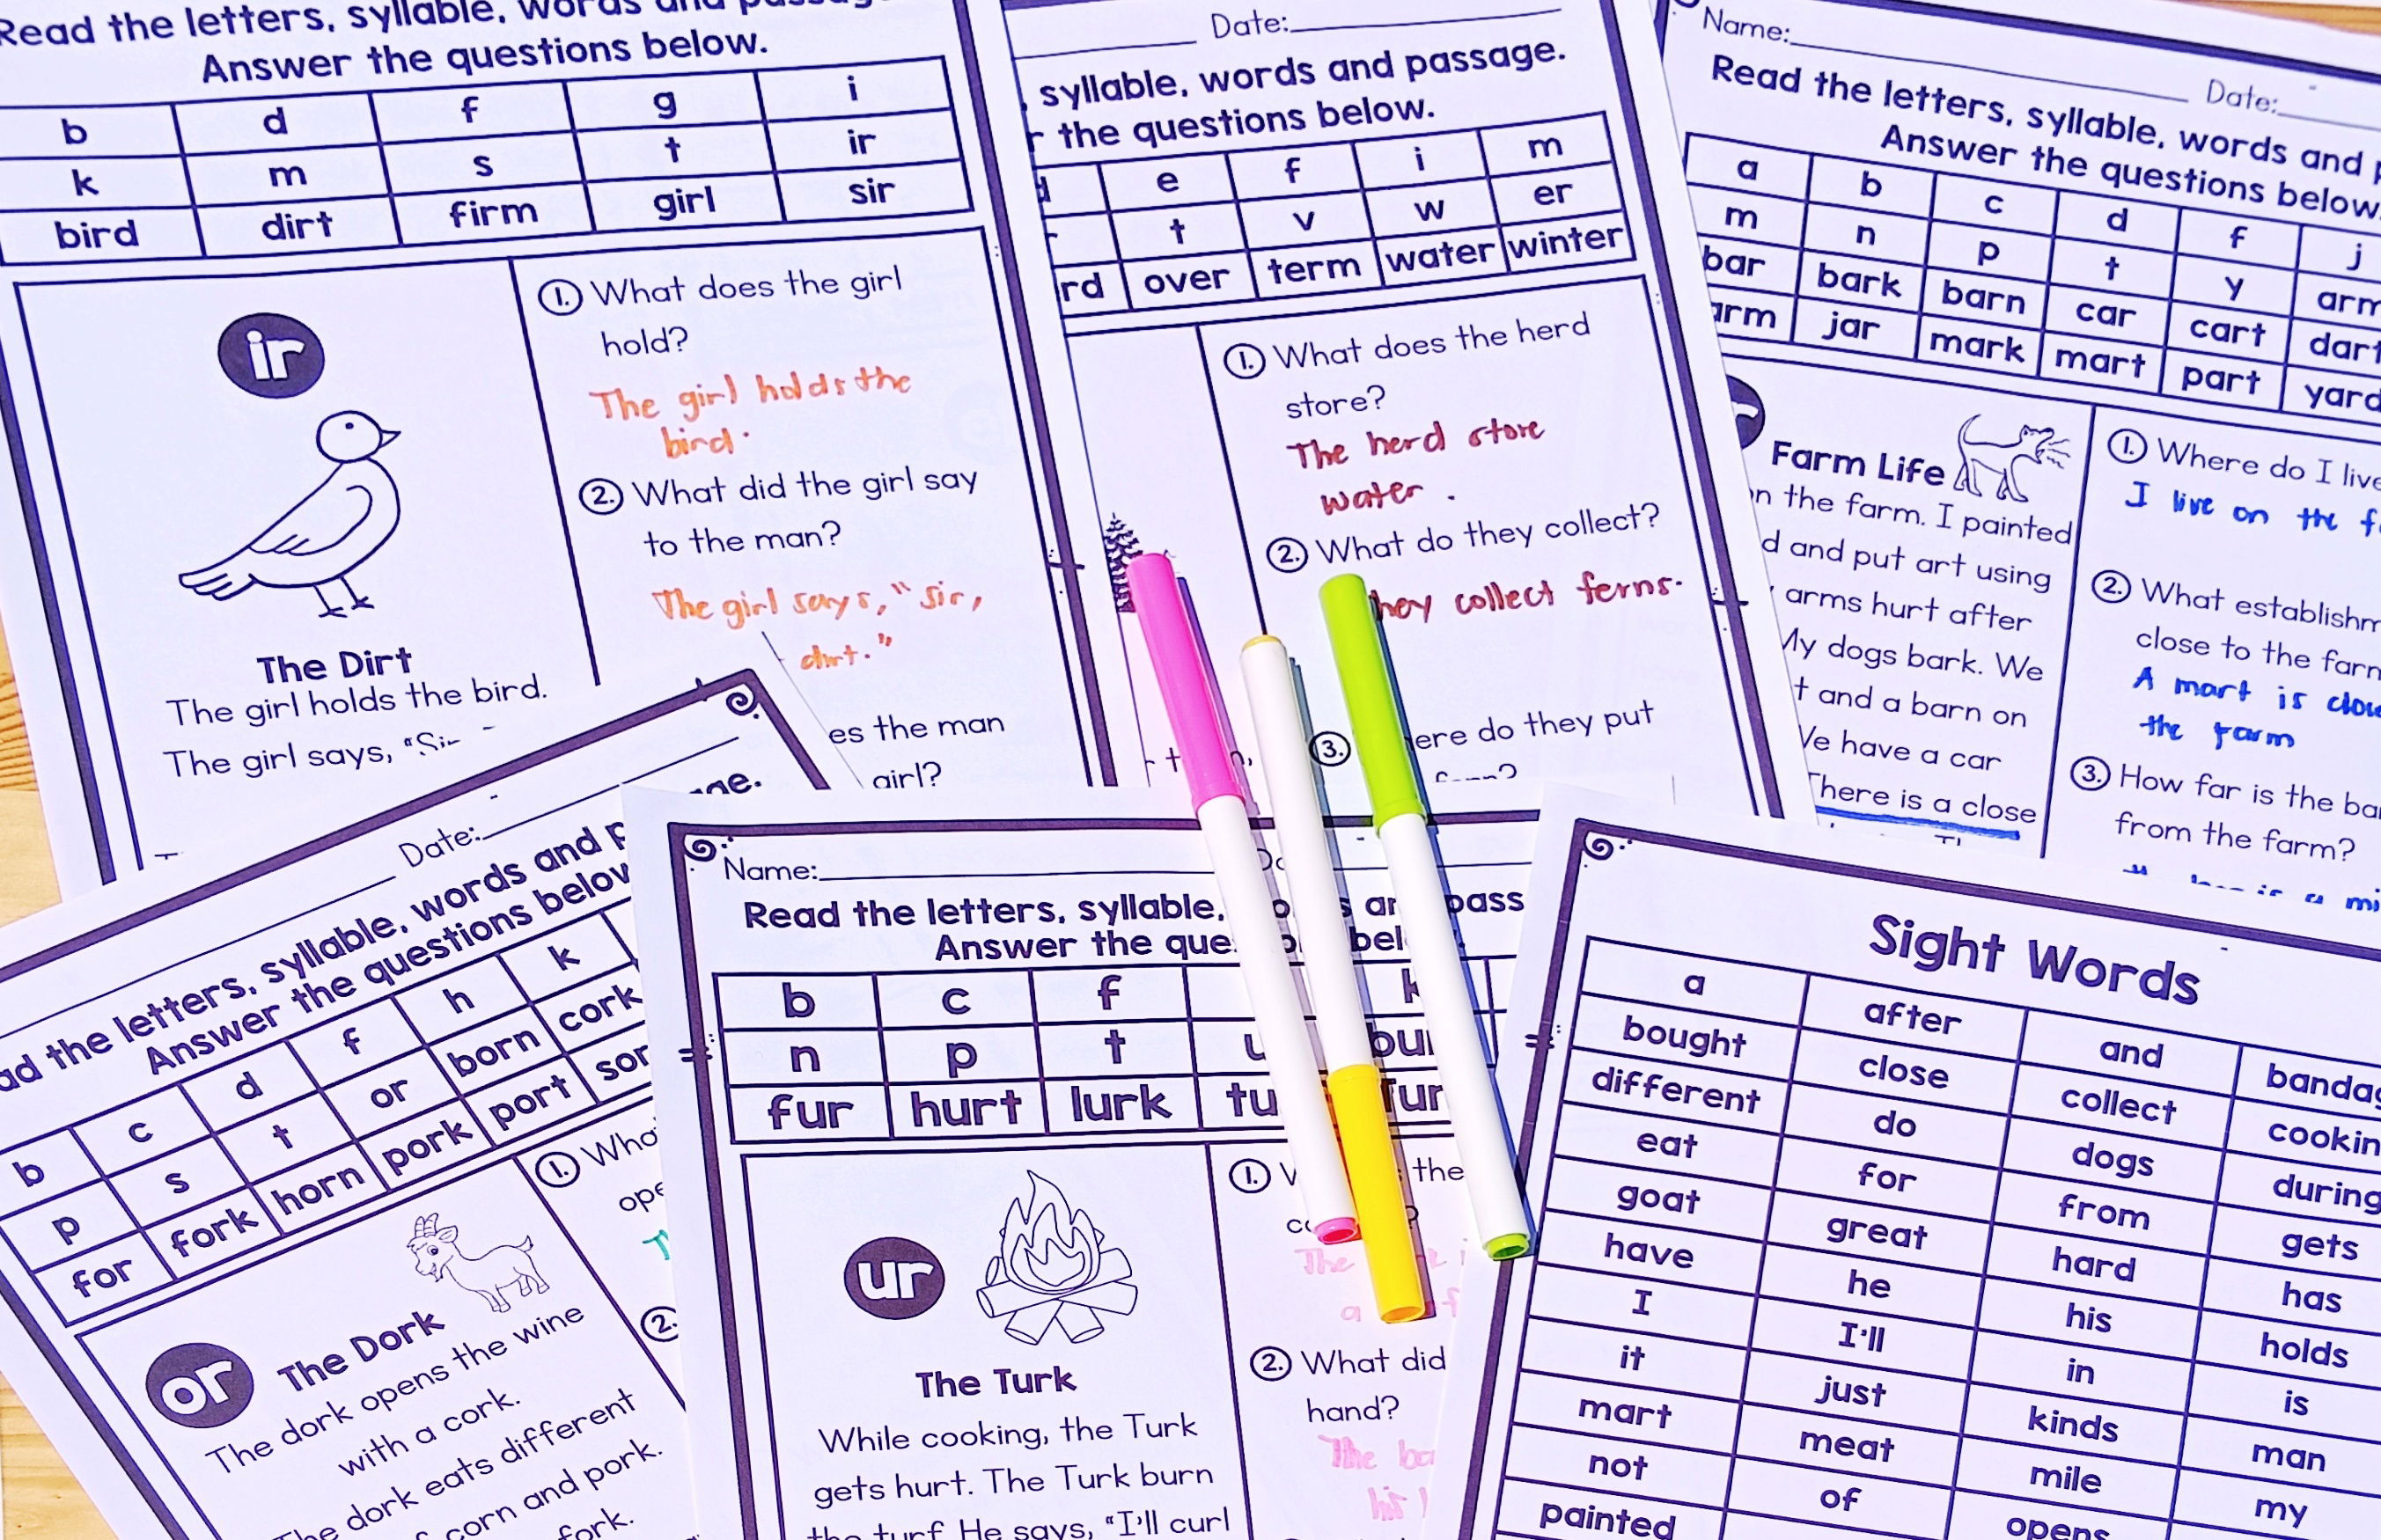 Read the letters, syllable, words and
Answer the questions below.
b d f g i
k m s t ir
bird dirt firm girl sir
ir
The Dirt
The girl holds the bird.
The girl says,
1. What does the girl
hold?
The girl holds the
bird.
2. What did the girl say
to the man?
The girl says, "sir,
dirt."
es the man
girl?
Date:
syllable, words and passage.
the questions below.
e f i m
t v w er
rd over term water winter
1. What does the herd
store?
The herd store
water.
2. What do they collect?
hey collect ferns.
3. ere do they put
Name:
Date:
Read the letters, syllable, words and
Answer the questions below
a b c d f j
m n p t y arm
bar bark barn car cart dart
arm jar mark mart part yard
Farm Life
on the farm. I painted
d and put art using
arms hurt after
My dogs bark. We
t and a barn on
We have a car
There is a close
1. Where do I live
I live on the f
2. What establishm
close to the farm
A mart is close
the farm
3. How far is the ba
from the farm?
is a mi
Date:
ad the letters, syllable, words and p
Answer the questions below
b c d f h k
p s t or born cork
for fork horn pork port sor
or
The Dork
The dork opens the wine
with a cork.
The dork eats different
corn and pork.
fork.
1. Wha
ope
T
2.
Name:
Read the letters, syllable, pass
Answer the que bel
b c f k
n p t u bur
fur hurt lurk tu Tur
ur
The Turk
While cooking, the Turk
gets hurt. The Turk burn
the turf. He says, "I'll curl
1. the
The
a f
2. What did
hand?
The ba
his
Sight Words
a after and bandag
bought close collect cookin
different do dogs during
eat for from gets
goat great hard has
have he his holds
I I'll in is
it just kinds man
mart meat mile my
not of opens
painted